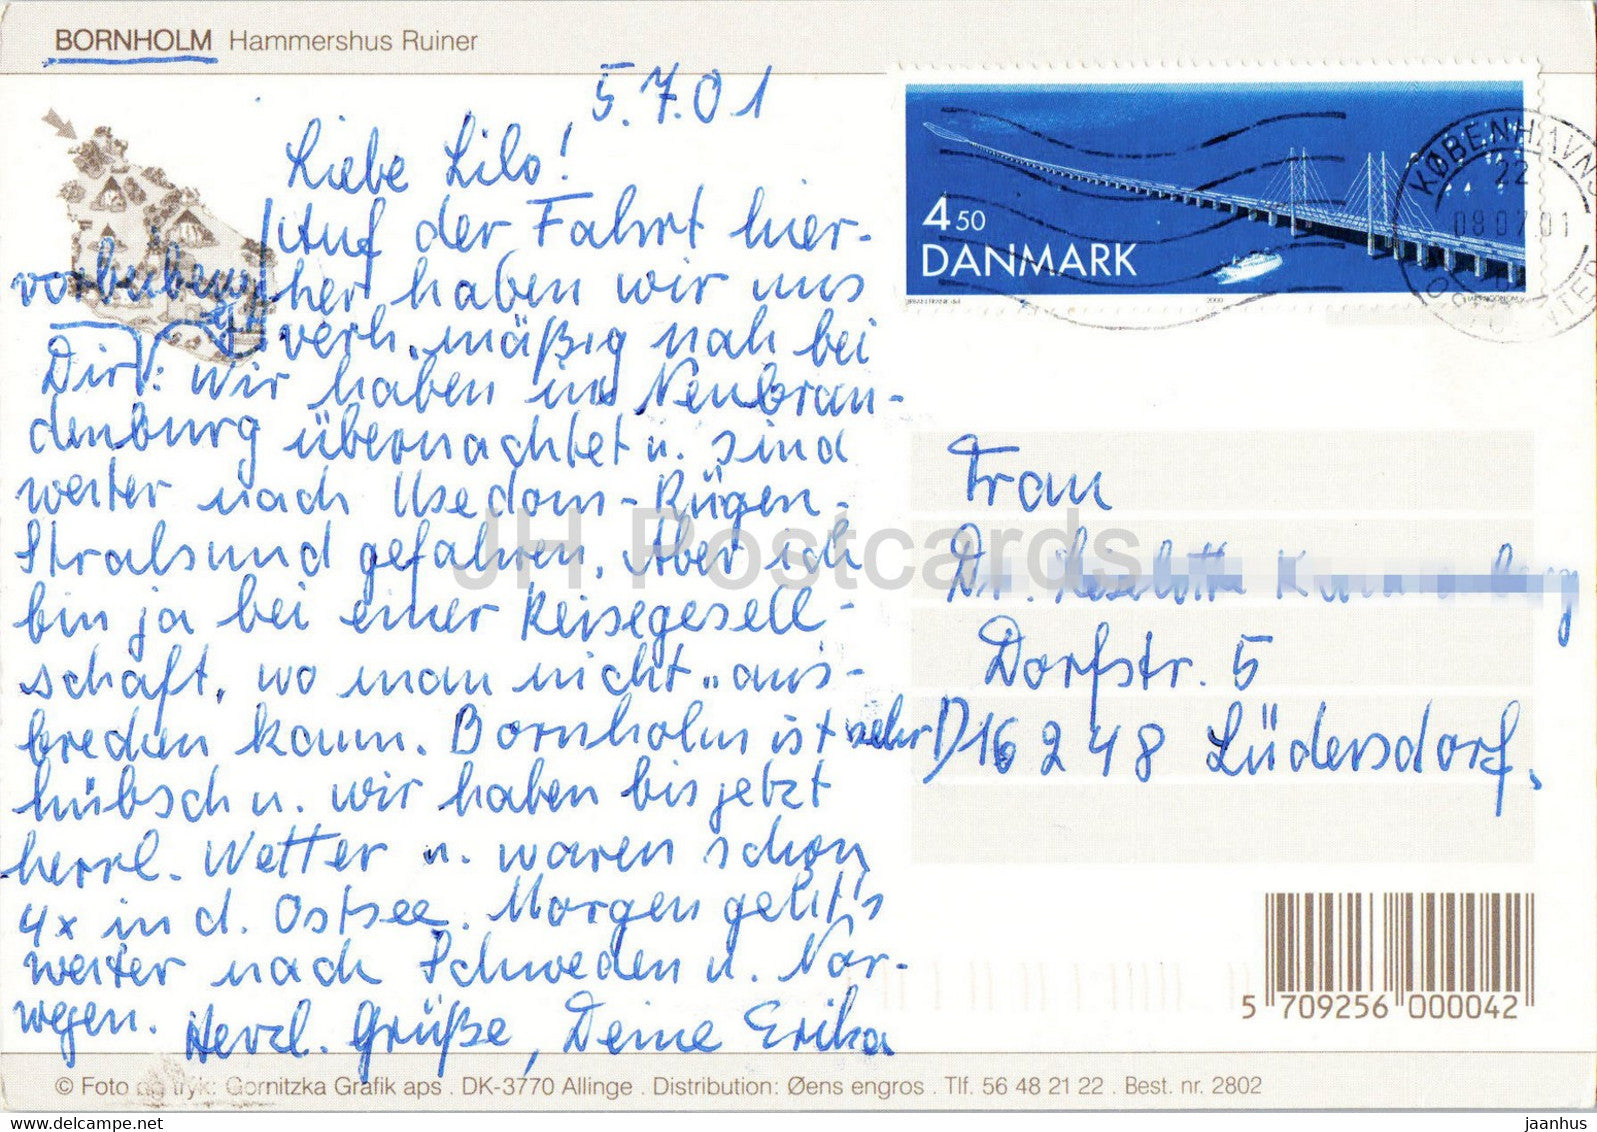 BORNHOLM Hammershus Ruiner
5.7.01
Liebe Lilo!
Auf der Fahrt hier-
her haben wir uns
verh. mäßig nah bei
Dir
vorbeibewegt
: Wir haben in Neubran-
denburg übernachtet u. sind
weiter nach Usedom-Rügen-
Stralsund gefahren. Aber ich
bin ja bei einer Reisegesell-
schaft, wo man nicht "aus-
brechen kann. Bornholm ist sehr
hübsch u. wir haben bis jetzt
herrl. Wetter u. waren schon
4x in d. Ostsee. Morgen geht's
weiter nach Schweden u. Nor-
wegen. Herzl. Grüße, Deine Erika
4 50
DANMARK
2000
KØBENHAVNS
22
09 07 01
POSTCENTER
Frau
Dr. Lieselotte
Dorfstr. 5
D16248 Lüdersdorf.
JH Postcards
5 709256 000042
© Foto og tryk: Gornitzka Grafik aps . DK-3770 Allinge . Distribution: Øens engros . Tlf. 56 48 21 22 . Best. nr. 2802
jaanhus